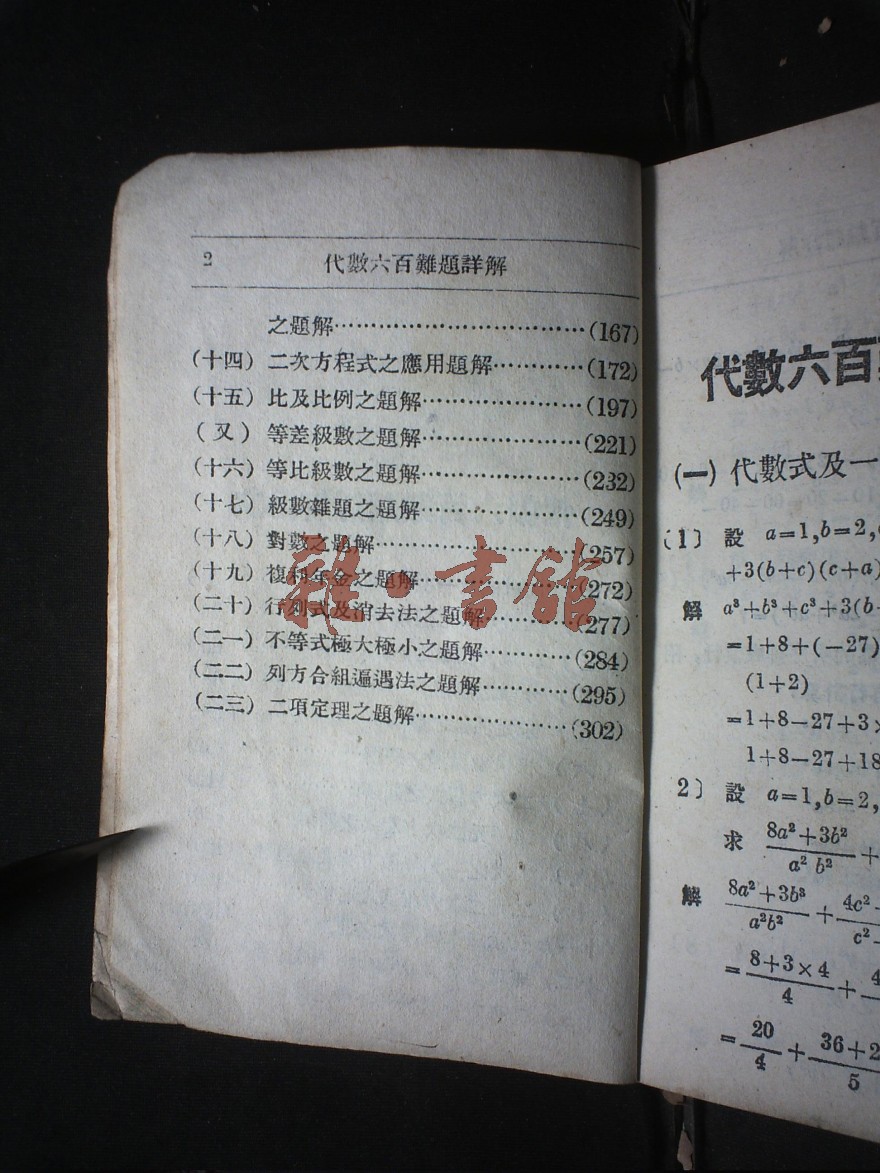 2
代數六百難題詳解
之題解……………………………(167)
(十四) 二次方程式之應用題解…………(172)
(十五) 比及比例之題解…………………(197)
(又) 等差級數之題解…………………(221)
(十六) 等比級數之題解…………………(232)
(十七) 級數雜題之題解…………………(249)
(十八) 對數之題解………………………(257)
(十九) 複利年金之題解…………………(272)
(二十) 行列式及消去法之題解…………(277)
(二一) 不等式極大極小之題解…………(284)
(二二) 列方合組逼遇法之題解…………(295)
(二三) 二項定理之題解…………………(302)
雜·書館
代數六百
(一) 代數式及一
〔1〕 設 a=1,b=2,
+3(b+c)(c+a)
解 a³+b³+c³+3(b
=1+8+(−27)
(1+2)
=1+8−27+3×
1+8−27+18
2〕 設 a=1,b=2,
求 8a²+3b²/a² b² +
解 8a²+3b³/a²b² + 4c²/c²
= 8+3×4/4 + 4
= 20/4 + 36+2/5